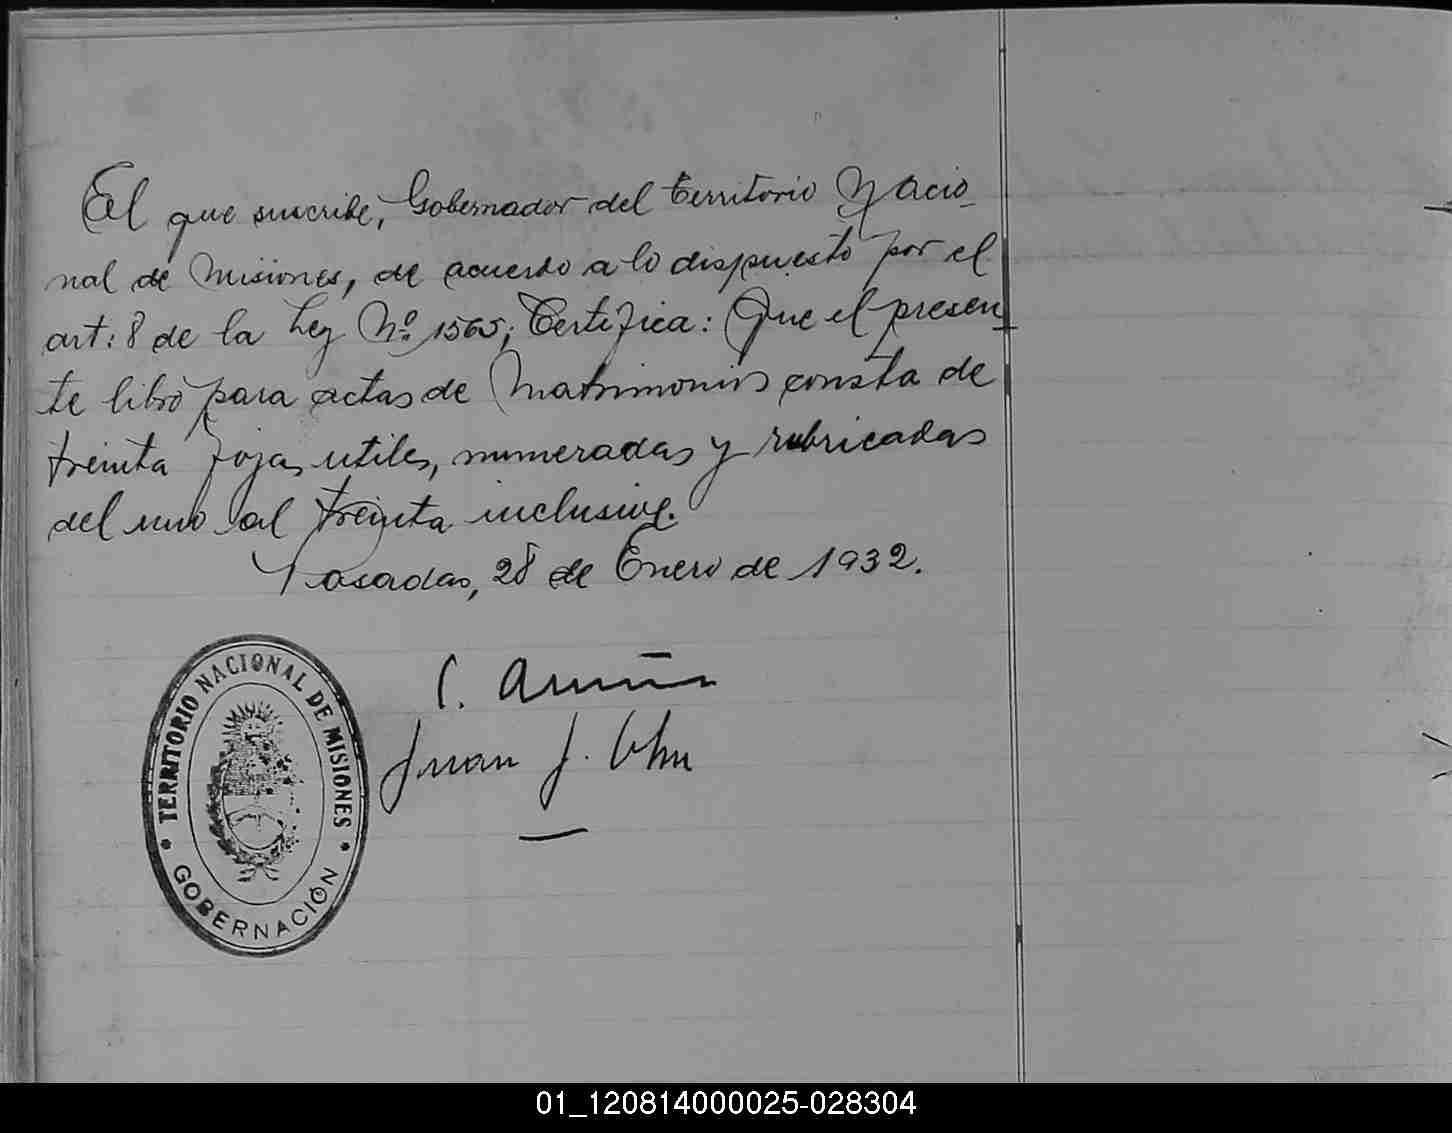 El que suscribe, Gobernador del Territorio Nacio_
nal de Misiones, de acuerdo a lo dispuesto por el
art: 8 de la Ley Nº 1565; Certifica: Que el presen
te libro para actas de Matrimonios consta de
treinta fojas utiles, numeradas y rubricadas
del uno al treinta inclusive.
Posadas, 28 de Enero de 1932.
C.
Juan J.
TERRITORIO NACIONAL DE MISIONES
GOBERNACIÓN
01_120814000025-028304